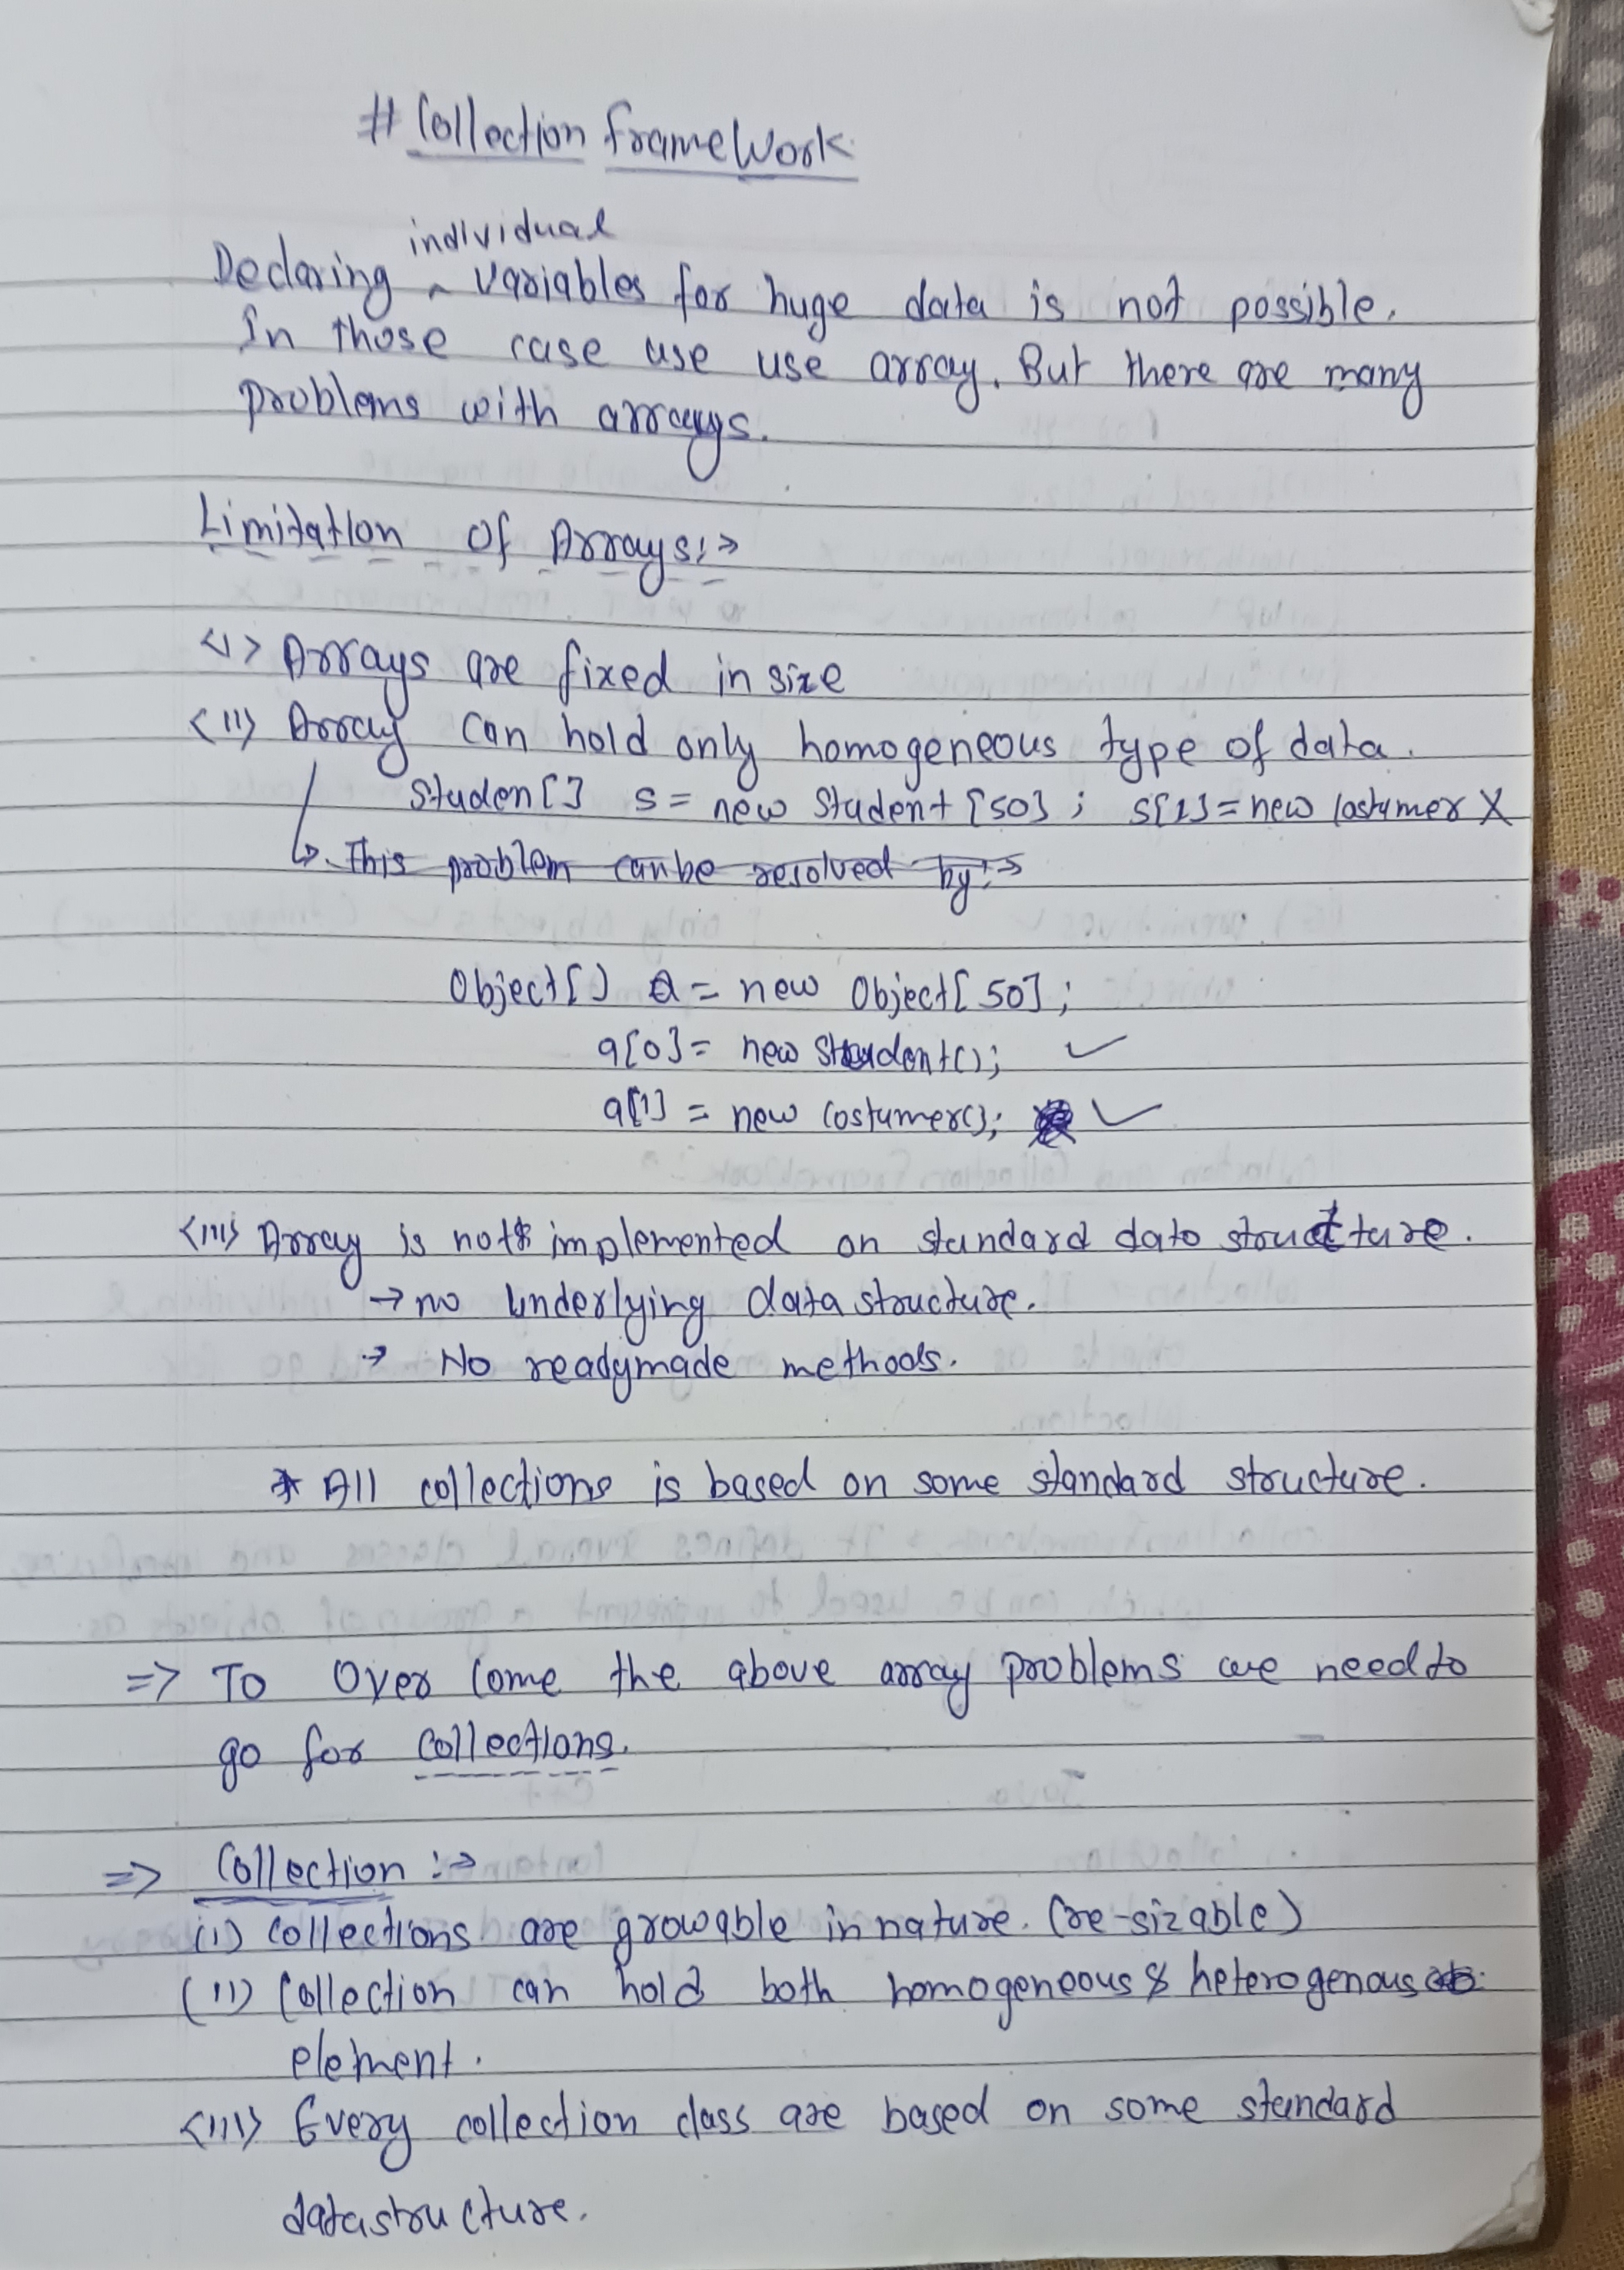 # Collection FrameWork
individual
Declaring ^ variables for huge data is not possible.
In those case use use array. But there are many
problems with arrays.
Limitation Of Arrays:->
<i> Arrays are fixed in size
<ii> Array can hold only homogeneous type of data.
Studen[] s = new Student [50]; s[1] = new Costumer X
↳ This problem can be resolved by:->
Object[] a = new Object[50];
a[0] = new Student(); ✓
a[1] = new Costumer(); ✓
<iii> Array is not implemented on standard data structure.
→ no underlying data structure.
→ No readymade methods.
* All collections is based on some standard structure.
=> To Over Come the above array problems we need to
go for Collections.
=> Collection :->
(i) Collections are growable in nature. (re-sizable)
(ii) Collection can hold both homogeneous & heterogenous
element.
<iii> Every collection class are based on some standard
datastructure.